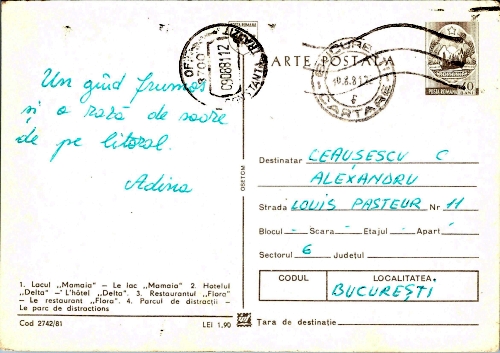 CARTE POSTALA
POSTA ROMANA
40
BANI
BUCURESTI
10.8.81.12
6
CARTARE
OF.
LITORAL
09088112
CONSTANTA
Un gînd frumos
și o rază de soare
de pe litoral.
Adina
Destinatar CEAUSESCU C
ALEXANDRU
Strada LOUIS PASTEUR Nr 11
Blocul - Scara - Etajul - Apart -
Sectorul 6 Județul
CODUL LOCALITATEA
BUCUREȘTI
Tara de destinație
1. Lacul „Mamaia" — Le lac „Mamaia" 2. Hotelul
„Delta" — L'hôtel „Delta". 3. Restaurantul „Flora"
— Le restaurant „Flora". 4. Parcul de distracții —
Le parc de distractions
Cod 2742/81 LEI 1,90